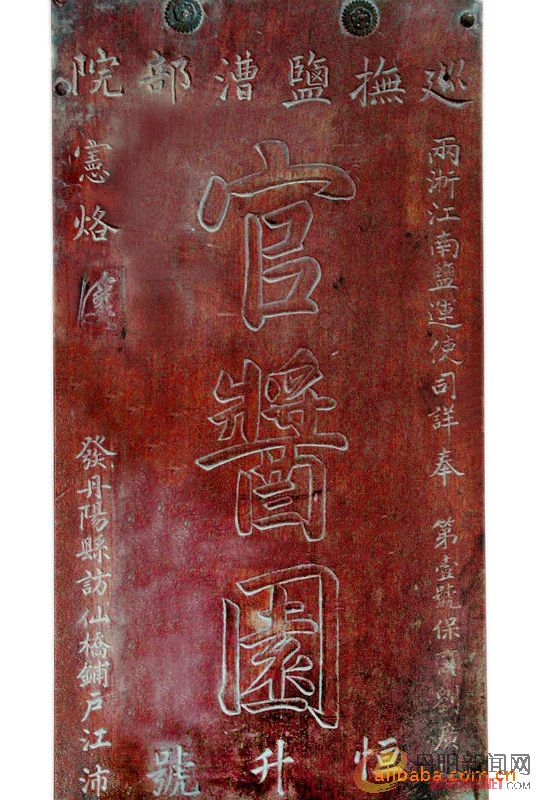 巡撫鹽漕部院
兩浙江南鹽運使司詳奉
第壹號保
劉
官醬園
憲烙
發丹陽縣訪仙橋鋪戶江沛
恒升號
丹阳新闻网
alibaba.com.cn